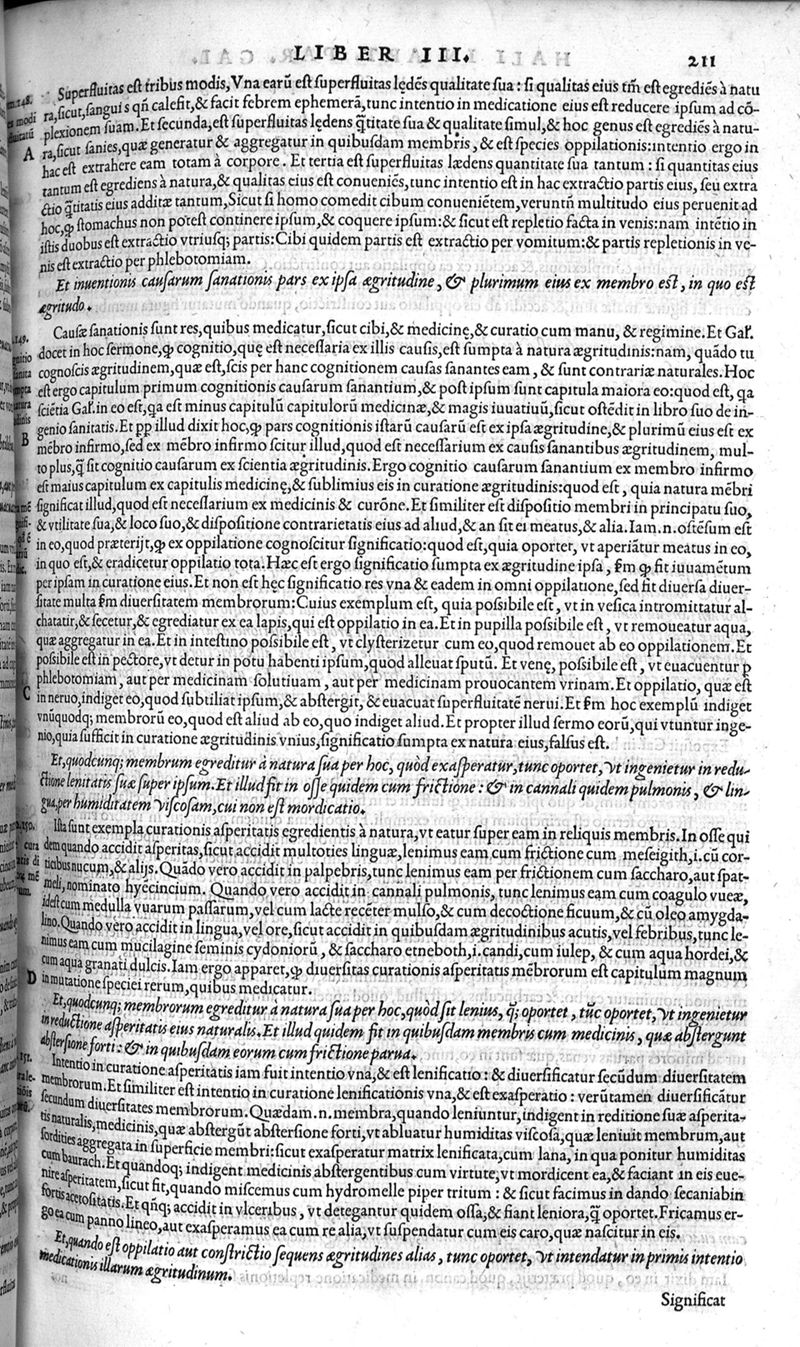 LIBER III.
211
Superfluitas est tribus modis, Vna earũ est superfluitas lędẽs qualitate sua: si qualitas eius tm̃ est egrediẽs à natu
ra, sicut, sanguis qñ calefit, & facit febrem ephemerã, tunc intentio in medicatione eius est reducere ipsum ad cõ-
plexionem suam. Et secunda, est superfluitas lędens q̃titate sua & qualitate simul, & hoc genus est egrediẽs à natu-
ra, sicut sanies, quæ generatur & aggregatur in quibusdam membris, & est species oppilationis: intentio ergo in
hac est extrahere eam totam à corpore. Et tertia est superfluitas lædens quantitate sua tantum: si quantitas eius
tantum est egrediens à natura, & qualitas eius est conueniẽs, tunc intentio est in hac extractio partis eius, seu extra
ctio q̃titatis eius additæ tantum, Sicut si homo comedit cibum conueniẽtem, veruntñ multitudo eius peruenit ad
hoc, ꝙ stomachus non potest continere ipsum, & coquere ipsum: & sicut est repletio facta in venis: nam intẽtio in
istis duobus est extractio vtriusq; partis: Cibi quidem partis est extractio per vomitum: & partis repletionis in ve-
nis est extractio per phlebotomiam.
Et inuentionis causarum sanationis pars ex ipsa ægritudine, & plurimum eius ex membro est, in quo est
ægritudo.
Causæ sanationis sunt res, quibus medicatur, sicut cibi, & medicinę, & curatio cum manu, & regimine. Et Gal'.
docet in hoc sermone, ꝙ cognitio, quę est necessaria ex illis causis, est sumpta à natura ægritudinis: nam, quãdo tu
cognoscis ægritudinem, quæ est, scis per hanc cognitionem causas sanantes eam, & sunt contrariæ naturales. Hoc
est ergo capitulum primum cognitionis causarum sanantium, & post ipsum sunt capitula maiora eo: quod est, qa
sciẽtia Gal'. in eo est, qa est minus capitulũ capitulorũ medicinæ, & magis iuuatiuũ, sicut ostẽdit in libro suo de in-
genio sanitatis. Et ꝓp illud dixit hoc, ꝙ pars cognitionis istarũ causarũ est ex ipsa ægritudine, & plurimũ eius est ex
mẽbro infirmo, sed ex mẽbro infirmo scitur illud, quod est necessarium ex causis sanantibus ægritudinem, mul-
to plus, q̃ fit cognitio causarum ex scientia ægritudinis. Ergo cognitio causarum sanantium ex membro infirmo
est maius capitulum ex capitulis medicinę, & sublimius eis in curatione ægritudinis: quod est, quia natura mẽbri
significat illud, quod est necessarium ex medicinis & curõne. Et similiter est dispositio membri in principatu suo,
& vtilitate sua, & loco suo, & dispositione contrarietatis eius ad aliud, & an sit ei meatus, & alia. Iam .n. ostẽsum est
in eo, quod præterijt, ꝙ ex oppilatione cognoscitur significatio: quod est, quia oporter, vt aperiãtur meatus in eo,
in quo est, & eradicetur oppilatio tota. Hæc est ergo significatio sumpta ex ægritudine ipsa, fm ꝙ fit iuuamẽtum
per ipsam in curatione eius. Et non est hęc significatio res vna & eadem in omni oppilatione, sed fit diuersa diuer-
sitate multa fm diuersitatem membrorum: Cuius exemplum est, quia possibile est, vt in vesica intromittatur al-
chatatir, & secetur, & egrediatur ex ea lapis, qui est oppilatio in ea. Et in pupilla possibile est, vt remoueatur aqua,
quæ aggregatur in ea. Et in intestino possibile est, vt clysterizetur cum eo, quod remouet ab eo oppilationem. Et
possibile est in pectore, vt detur in potu habenti ipsum, quod alleuat sputũ. Et venę, possibile est, vt euacuentur ꝑ
phlebotomiam, aut per medicinam solutiuam, aut per medicinam prouocantem vrinam. Et oppilatio, quæ est
in neruo, indiget eo, quod subtiliat ipsum, & abstergit, & euacuat superfluitatẽ nerui. Et fm hoc exemplũ indiget
vnũquodq; membrorũ eo, quod est aliud ab eo, quo indiget aliud. Et propter illud sermo eorũ, qui vtuntur inge-
nio, quia sufficit in curatione ægritudinis vnius, significatio sumpta ex natura eius, falsus est.
Et, quodcunq; membrum egreditur à natura sua per hoc, quòd exasperatur, tunc oportet, vt ingenietur in redu-
ctione lenitatis suæ super ipsum. Et illud fit in osse quidem cum frictione: & in cannali quidem pulmonis, & lin-
gua, per humiditatem viscosam, cui non est mordicatio.
Ista sunt exempla curationis asperitatis egredientis à natura, vt eatur super eam in reliquis membris. In osse qui
dem quando accidit asperitas, sicut accidit multoties linguæ, lenimus eam cum frictione cum meseigith, i. cũ cor-
ticibus nucum, & alijs. Quãdo vero accidit in palpebris, tunc lenimus eam per frictionem cum saccharo, aut spat-
meli, nominato hyecincium. Quando vero accidit in cannali pulmonis, tunc lenimus eam cum coagulo vueæ,
idest cum medulla vuarum passarum, vel cum lacte recẽter mulso, & cum decoctione ficuum, & cũ oleo amygda-
lino. Quando vero accidit in lingua, vel ore, sicut accidit in quibusdam ægritudinibus acutis, vel febribus, tunc le-
nimus eam cum mucilagine seminis cydoniorũ, & saccharo etneboth, i. candi, cum iulep, & cum aqua hordei, &
cum aqua granati dulcis. Iam ergo apparet, ꝙ diuersitas curationis asperitatis mẽbrorum est capitulum magnum
in mutatione speciei rerum, quibus medicatur.
Et, quodcunq; membrorum egreditur à natura sua per hoc, quòd sit lenius, q̃; oportet, tũc oportet, vt ingenietur
in reductione asperitatis eius naturalis. Et illud quidem fit in quibusdam membris cum medicinis, quæ abstergunt
abstersione forti: & in quibusdam eorum cum frictione parua.
Intentio in curatione asperitatis iam fuit intentio vna, & est lenificatio: & diuersificatur secũdum diuersitatem
membrorum. Et similiter est intentio in curatione lenificationis vna, & est exasperatio: verũtamen diuersificãtur
secundum diuersitates membrorum. Quædam .n. membra, quando leniuntur, indigent in reditione suæ asperita-
tis naturalis, medicinis, quæ abstergũt abstersione forti, vt abluatur humiditas viscosa, quæ leniuit membrum, aut
sordities aggregata in superficie membri: sicut exasperatur matrix lenificata, cum lana, in qua ponitur humiditas
cum baurach. Et quandoq; indigent medicinis abstergentibus cum virtute, vt mordicent ea, & faciant in eis eue-
nire asperitatem, sicut fit, quando miscemus cum hydromelle piper tritum: & sicut facimus in dando secaniabin
fortis acetositatis. Et qñq; accidit in vlceribus, vt detegantur quidem ossa, & fiant leniora, q̃ oportet. Fricamus er-
go ea cum panno lineo, aut exasperamus ea cum re alia, vt suspendatur cum eis caro, quæ nascitur in eis.
Et, quando est oppilatio aut constrictio sequens ægritudines alias, tunc oportet, vt intendatur in primis intentio
medicationis illarum ægritudinum.
Significat
A
B
C
D